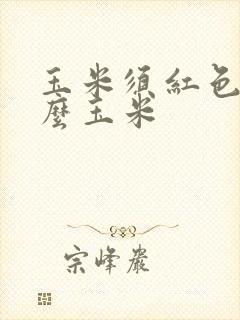 玉米須紅色
麼玉米
宗峰巖